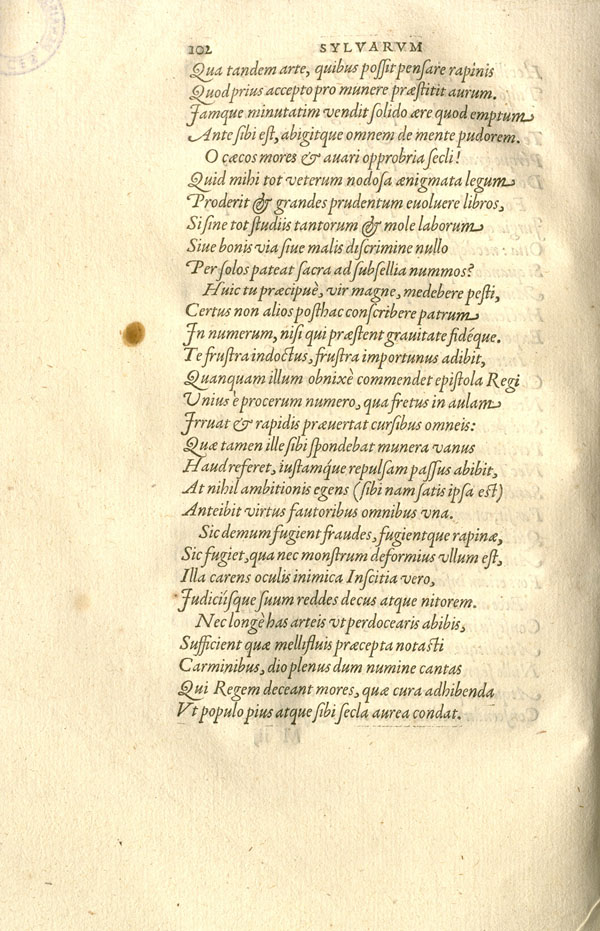 102 SYLVARVM
Qua tandem arte, quibus possit pensare rapinis
Quod prius accepto pro munere præstitit aurum.
Jamque minutatim vendit solido ære quod emptum
Ante sibi est, abigitque omnem de mente pudorem.
O cæcos mores & auari opprobria secli!
Quid mihi tot veterum nodosa ænigmata legum
Proderit & grandes prudentum euoluere libros,
Si sine tot studiis tantorum & mole laborum
Siue bonis via siue malis discrimine nullo
Per solos pateat sacra ad subsellia nummos?
Huic tu præcipuè, vir magne, medebere pesti,
Certus non alios posthac conscribere patrum
In numerum, nisi qui præstent grauitate fidéque.
Te frustra indoctus, frustra importunus adibit,
Quanquam illum obnixè commendet epistola Regi
Unius è procerum numero, qua fretus in aulam
Irruat & rapidis præuertat cursibus omneis:
Quæ tamen ille sibi spondebat munera vanus
Haud referet, iustamq́ue repulsam passus abibit,
At nihil ambitionis egens (sibi nam satis ipsa est)
Anteibit virtus fautoribus omnibus vna.
Sic demum fugient fraudes, fugientque rapinæ,
Sic fugiet, qua nec monstrum deformius vllum est,
Illa carens oculis inimica Inscitia vero,
Judiciisque suum reddes decus atque nitorem.
Nec longè has arteis vt perdocearis abibis,
Sufficient quæ mellifluis præcepta notasti
Carminibus, dio plenus dum numine cantas
Qui Regem deceant mores, quæ cura adhibenda
Vt populo pius atque sibi secla aurea condat.